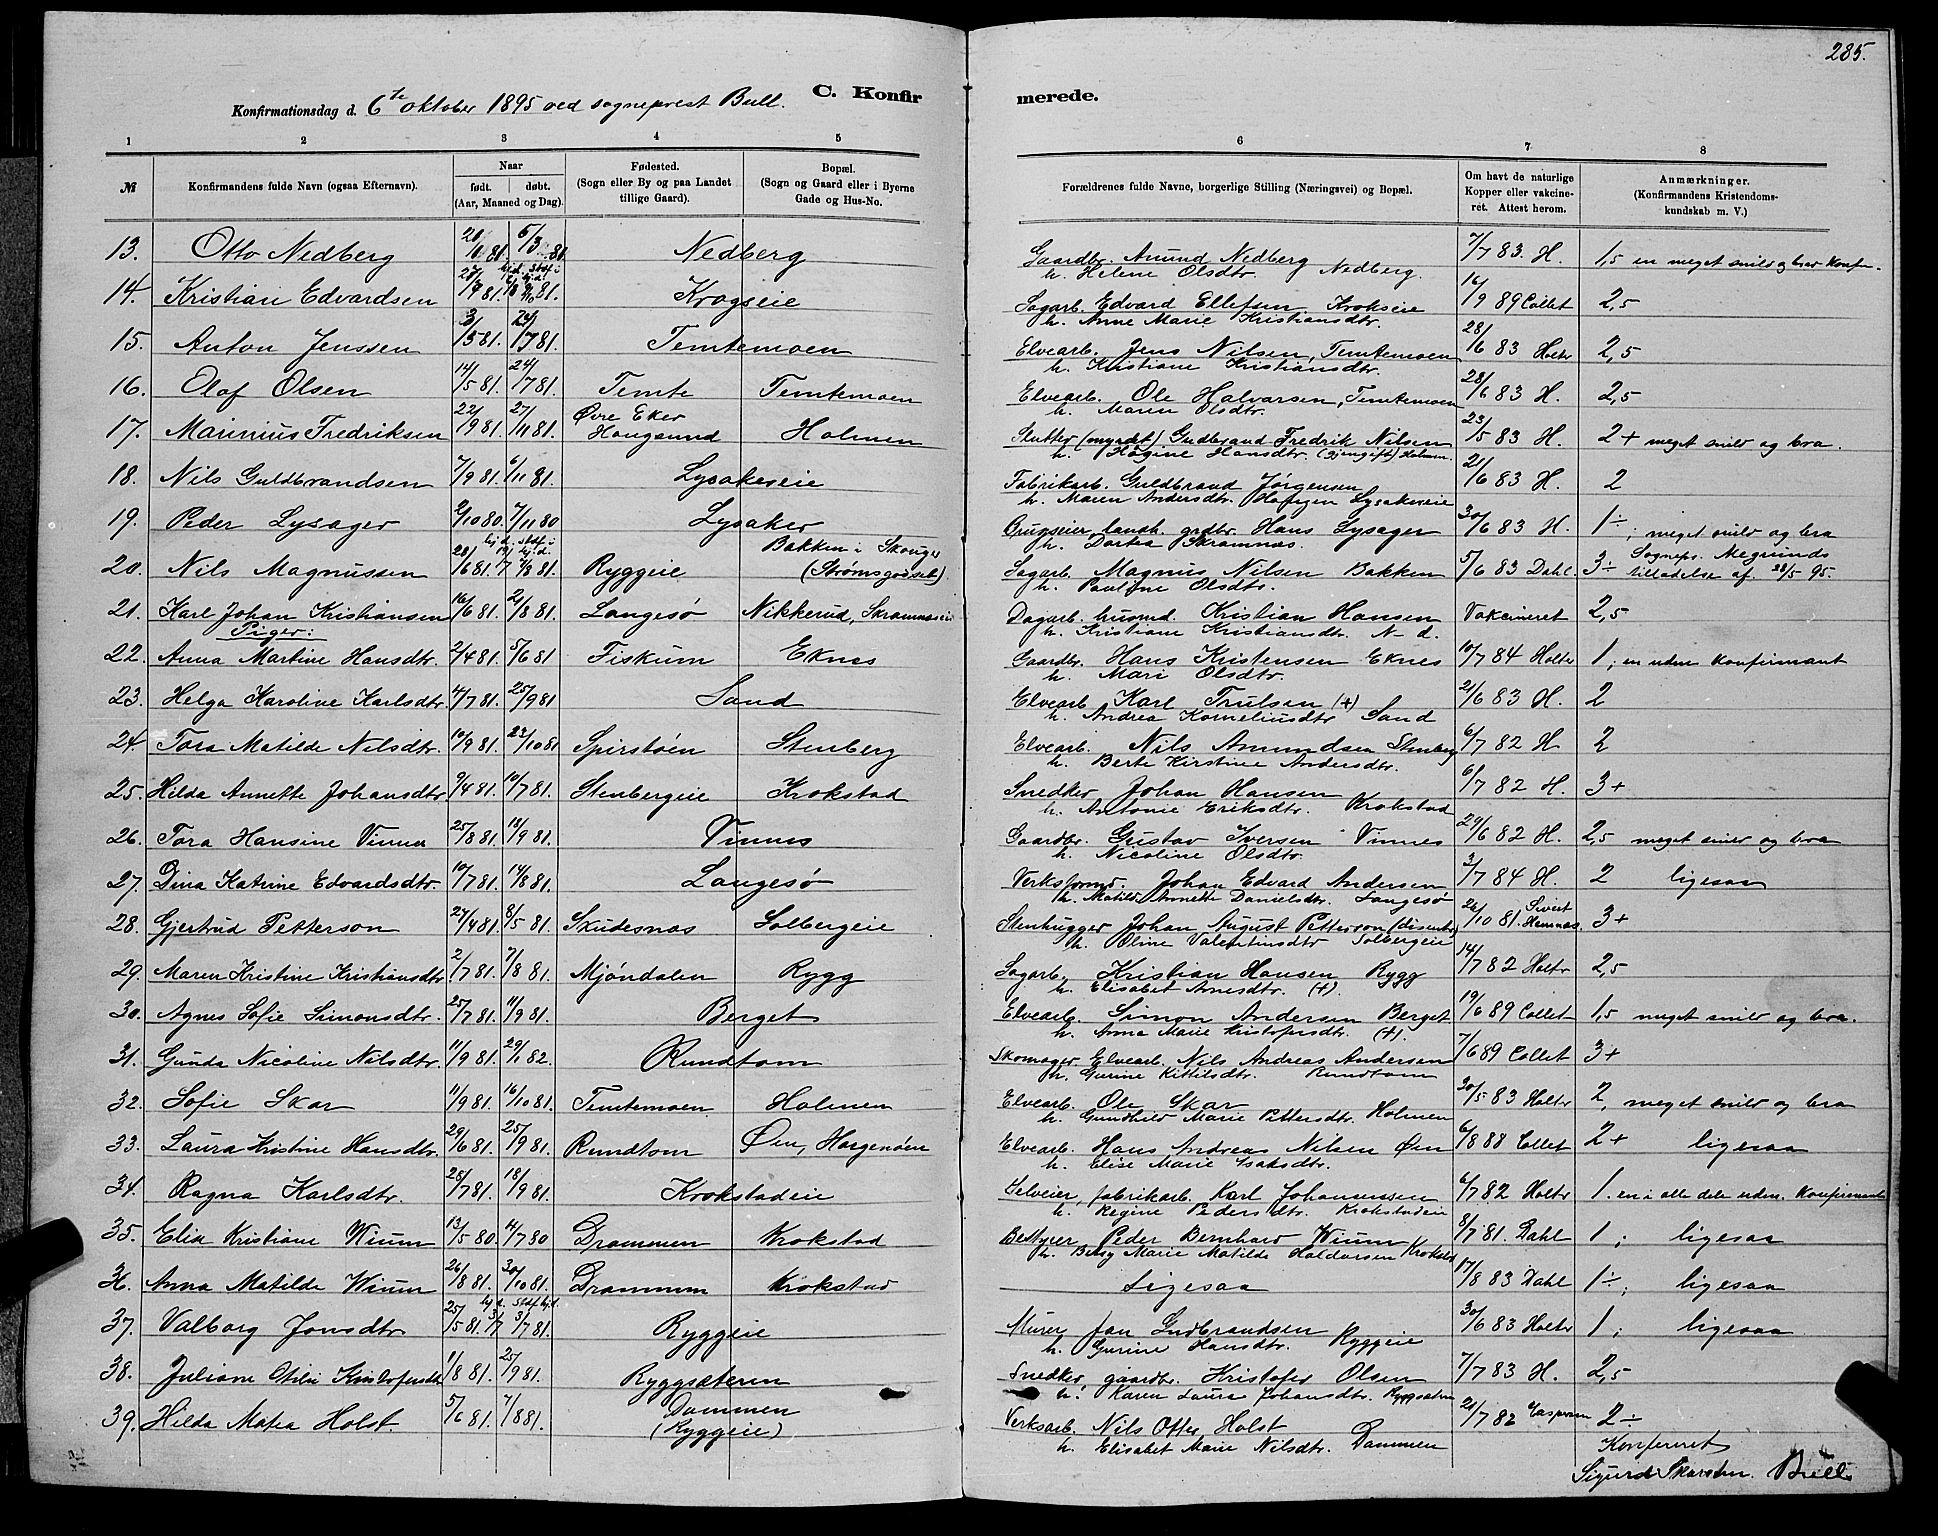 285.
Konfirmationsdag d. 6te oktober 1895 ved sogneprest Bull. C. Konfirmerede.
1 2 3 4 5 6 7 8
№ Konfirmandens fulde Navn (ogsaa Efternavn). Naar født. døbt. (Aar, Maaned og Dag). Fødested. (Sogn eller By og paa Landet tillige Gaard). Bopæl. (Sogn og Gaard eller i Byerne Gade og Hus-No.
Forældrenes fulde Navne, borgerlige Stilling (Næringsvei) og Bopæl. Om havt de naturlige Kopper eller vakcineret. Attest herom. Anmærkninger. (Konfirmandens Kristendomskundskab m. V.)
13. Otto Nedberg Nedberg Gaardbr. Amund Nedberg 7/7 83 H. 1,5 en meget snild og brav konfir.
h. Helene Olsdtr. Nedberg.
14. Kristian Edvardsen Krogseie Sagarb. Edvard Elletsen Krokseie 16/9 89 Collet 2,5
h. Anne Marie Kristiansdtr.
15. Anton Jenssen 3/5 81. 24/7 81. Temtemoen Elvearb. Jens Nilsen, Temtemoen 28/6 83 Holtr 2,5
h. Kristiane Kristiansdtr.
16. Olaf Olsen 14/5 81. 24/7 81. Temte Temtemoen Elvearb. Ole Halvorsen, Temtemoen 28/6 83 H. 2,5
h. Maren Olsdtr.
17. Marinius Fredriksen 22/9 81. 27/11 81. Øvre Eker Hougsund Holmen Slutter (myrdet) Gudbrand Fredrik Nilsen 23/5 83 H. 2+ meget snild og bra.
h. Hagine Hansdtr. (gjengift) Holmen
18. Nils Guldbrandsen 7/9 81. 6/11 81. Lysakereie Fabrikarb. Guldbrand Jørgensen 21/6 83 H. 2
h. Maren Andersdtr. Lysakereie
19. Peder Lysager 2/10 80. 7/11 80 Lysaker Brugseier, landh. grdbr. Hans Lysager 30/6 83 H. 1÷; meget snild og bra
h. Dortea Skramnæs.
20. Nils Magnussen 28/6 81. 7/8 81. Ryggeie Bakken i Skouger (Strømsgodset) Sagarb. Magnus Nilsen Bakken 5/6 83 Dahl. 3÷ Sognepr. Megrunds tilladelse af 28/5 95.
h. Pauline Olsdtr.
21. Karl Johan Kristiansen 16/6 81. 2/8 81. Langesø Nikkerud, Skramnæseie Dagarb. husmd. Kristian Hansen Vakcineret 2,5
h. Kristiane Kristiansdtr. N d.
Piger:
22. Anna Martine Hansdtr. 2/4 81. 5/6 81 Fiskum Eknes Gaardbr. Hans Kristensen Eknes 10/7 84 Holtr 1; en uden konfirmant
h. Mari Olsdtr.
23. Helga Karoline Karlsdtr. 4/7 81. 25/9 81 Sand Elvearb. Karl Trulsen (+) 21/6 83 H. 2
h. Andrea Korneliusdtr Sand
24. Tora Matilde Nilsdtr. 10/9 81. 23/10 81 Spirstøen Stenberg Elvearb. Nils Amundsen Stenberg 6/7 82 H 2
h. Berte Kirstine Andersdtr.
25. Hilda Annette Johansdtr 9/4 81. 10/7 81. Stenbergeie Krokstad Snedker Johan Hansen 6/7 82 H. 3+
h. Antonie Eriksdtr. Krokstad
26. Tora Hansine Vinnes 25/8 81. 18/9 81. Vinnes Gaardbr. Gustav Iversen Vinnes 29/6 82 H. 2,5 meget snild og bra
h. Nicoline Olsdtr.
27. Dina Katrine Edvardsdtr. 10/7 81. 14/8 81. Langesø Verksformd. Johan Edvard Andersen 3/7 84 H. 2 ligesaa
h. Matilde Annette Danielsdtr. Langesø
28. Gjertrud Petterson 27/4 81. 8/5 81. Skudesnæs Solbergeie Stenhugger Johan August Petterson (disenter) 26/10 81. Sivert Hemnæs. 3+
h. Oline Valentinsdtr Solbergeie
29. Maren Kristine Kristiansdtr. 2/7 81. 7/8 81. Mjøndalen Rygg Sagarb. Kristian Hansen Rygg 14/7 82 Holtr 2,5
h. Elisabet Arnesdtr. (+).
30. Agnes Sofie Simonsdtr. 25/7 81. 11/9 81. Berget Elvearb. Simon Andersen Berget 19/6 89 Collet 1,5 meget snild og bra.
h. Anna Marie Kristofersdtr. (+).
31. Gunda Nicoline Nilsdtr. 11/9 81. 29/1 82. Rundtom Skomager, Elvearb. Nils Andreas Andersen 7/6 89 Collet 3+
h. Gurine Kittilsdtr. Rundtom
32. Sofie Skar 11/9 81. 16/10 81. Temtemoen Holmen Elvearb. Ole Skar 30/5 83 Holtr 2, meget snild og bra
h. Gundhild Marie Pettersdtr. Holmen
33. Laura Kristine Hansdtr. 29/6 81. 25/9 81. Rundtom Øen, Horgenøene Elvearb. Hans Andreas Nilsen Øen 6/8 88 Collet 2+ ligesaa
h. Elise Marie Isaksdtr.
34. Ragna Karlsdtr. 28/7 81. 18/9 81. Krokstadeie Selveier, fabrikarb. Karl Johannessen 6/7 82 Holtr 1. en i alle dele uden. konfirmant
h. Regine Pedersdtr. Krokstadeie
35. Elid Kristiane Wium 13/5 80. 4/7 80 Drammen Krokstad Bestyrer Peder Bernhard Wium 8/7 81. Dahl 1; ligesaa
h. Betsy Marie Matilde Haldorsen Krokstad
36. Anna Matilde Wium 26/8 81. 30/10 81. Drammen Krokstad Ligesaa 17/8 83 Dahl 1÷; ligesaa
37. Valborg Jonsdtr 25/5 81. 3/7 81. Ryggeie Murer Jon Gudbrandsen 30/6 83 Holtr 1; ligesaa
h. Gurine Hansdtr. Ryggeie
38. Juliane Otilie Kristofersdtr 1/8 81. 25/9 81. Ryggsæteren Snedker, gaardbr. Kristofer Olsen 7/7 83 H. 2,5
h. Karen Laura Johansdtr. Ryggsætern
39. Hilda Holst. 5/6 81. 7/8 81. Dammen (Ryggeie) Verksarb. Nils Otter Holst 21/7 82 Caspersen 2÷
h. Elisabet Marie Nilsdtr. Dammen
Konfereret
Sigurd Skarsten. Bull